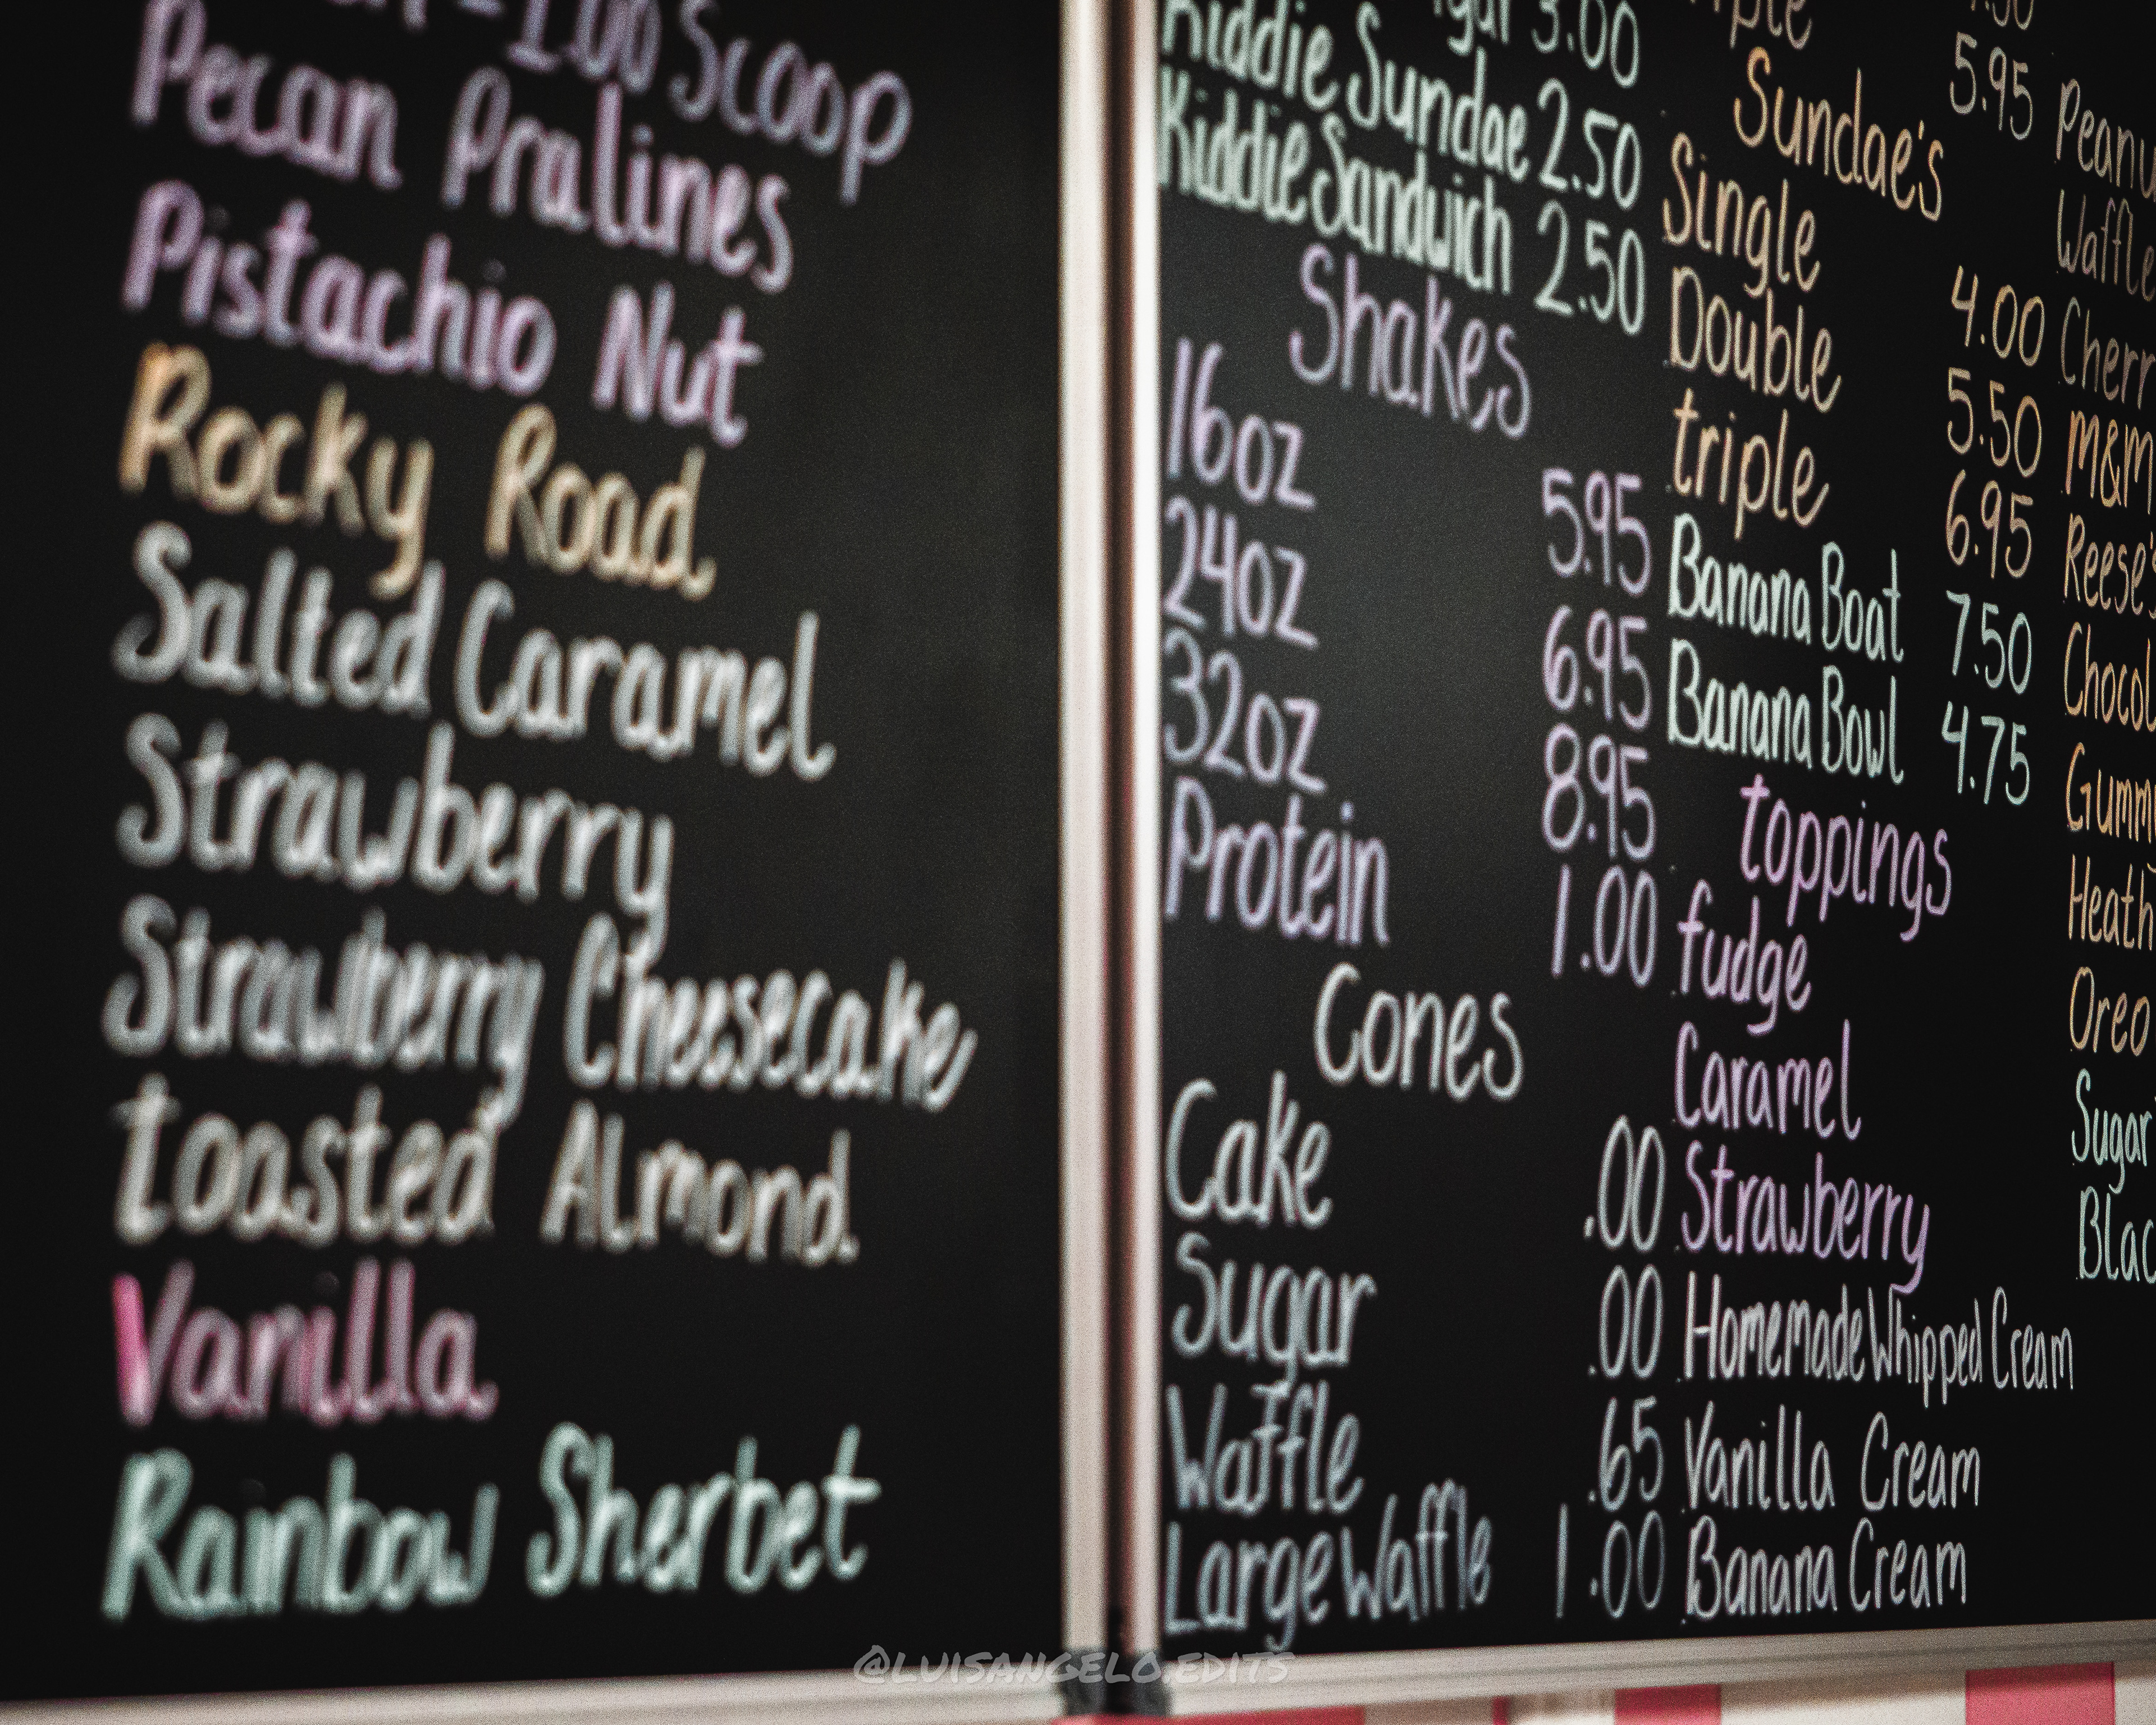 1.00 Scoop
Pecan Pralines
Pistachio Nut
Rocky Road
Salted Caramel
Strawberry
Strawberry Cheesecake
toasted Almond
Vanilla
Rainbow Sherbet
3.00
Kiddie Sundae 2.50
Kiddie Sandwich 2.50
Shakes
16oz 5.95
24oz 6.95
32oz 8.95
Protein 1.00
Cones
Cake .00
Sugar .00
Waffle .65
Large Waffle 1.00
5.95
Sundae's
Single 4.00
Double 5.50
triple 6.95
Banana Boat 7.50
Banana Bowl 4.75
toppings
fudge
Caramel
Strawberry
Homemade Whipped Cream
Vanilla Cream
Banana Cream
Peanu
Waffle
Cherr
M&M
Reese's
Chocol
Gummy
Heath
Oreo
Sugar
Blac
@luisangelo.edits